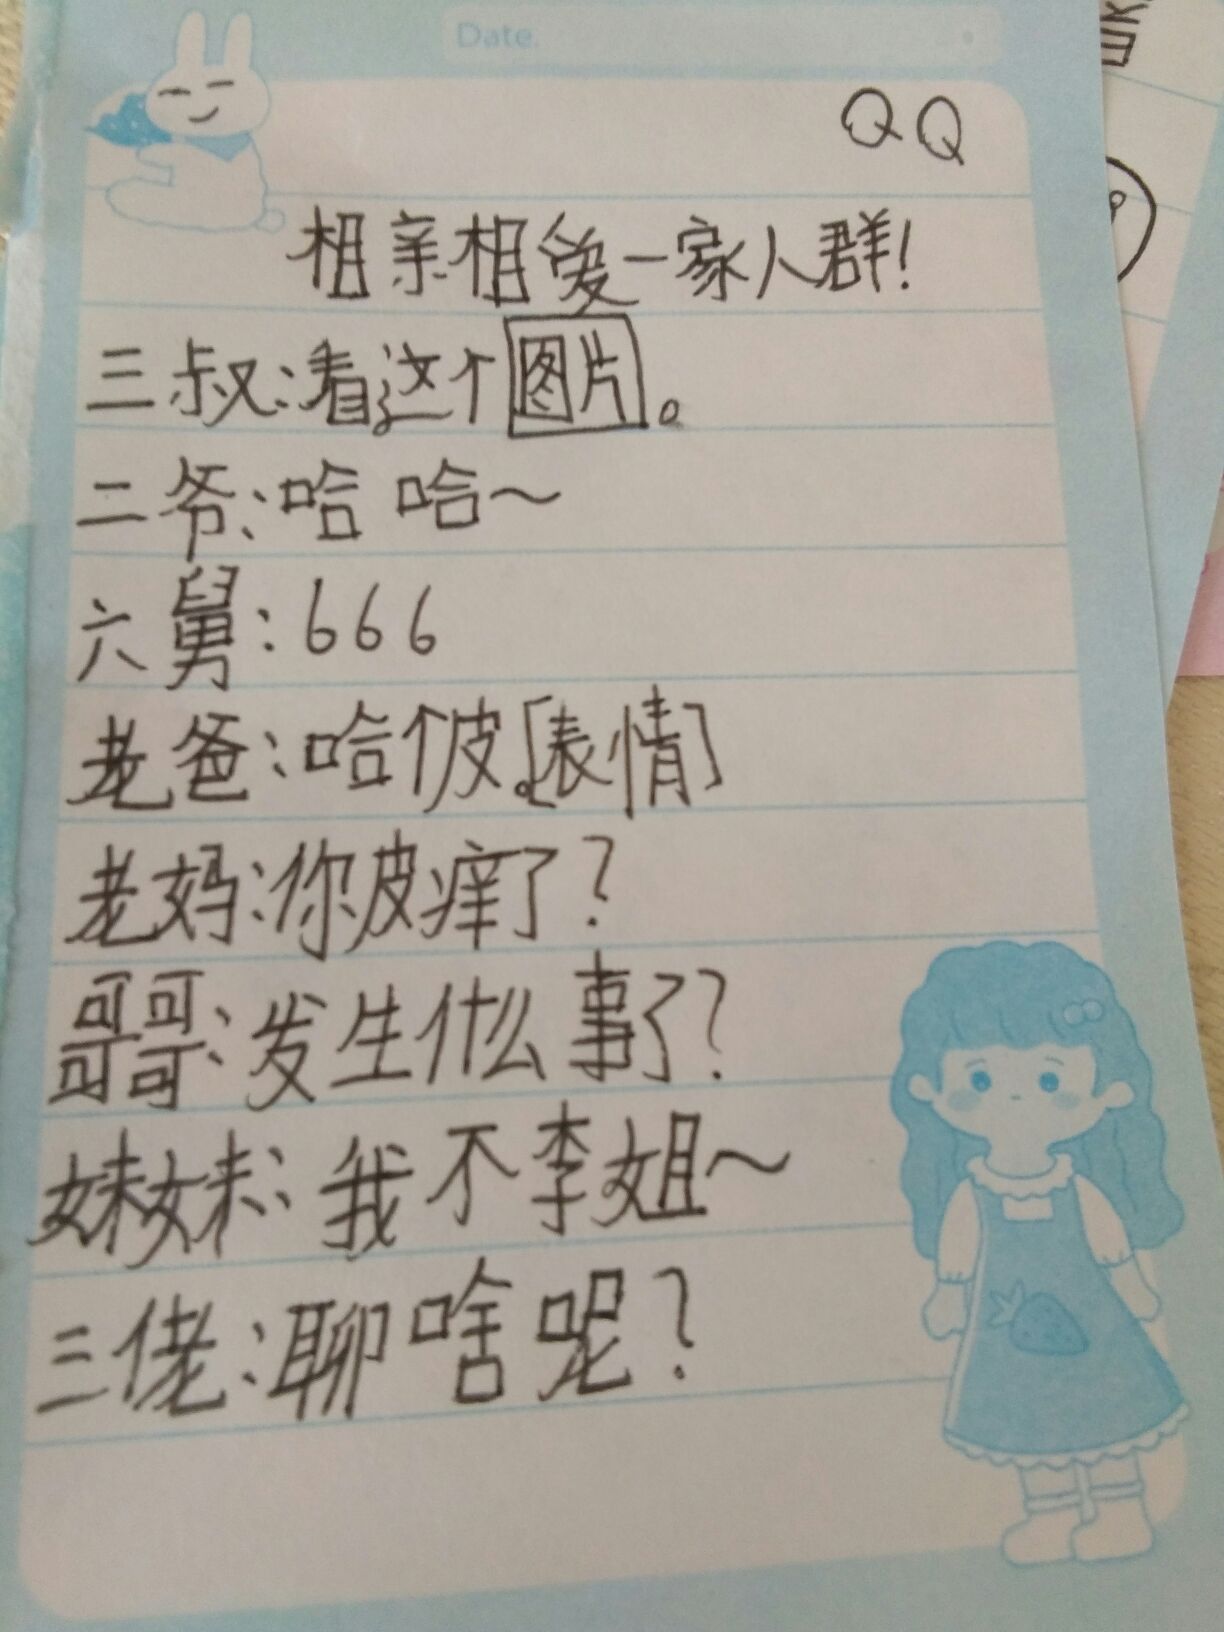 Date.
QQ
相亲相爱一家人群!
三叔:看这个图片。
二爷:哈哈~
六舅:666
老爸:哈个皮。[表情]
老妈:你皮痒了?
哥哥:发生什么事了?
妹妹:我不李姐~
三佬:聊啥呢?